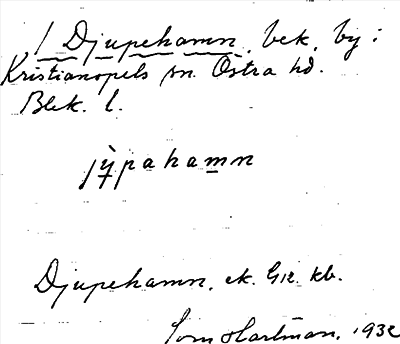 / Djupehamn, bek. by i
Kristianopels sn. Östra hd.
Blek. l.
jỳ̖pahamn
Djupehamn, ek. kb.
Hartman, 1932